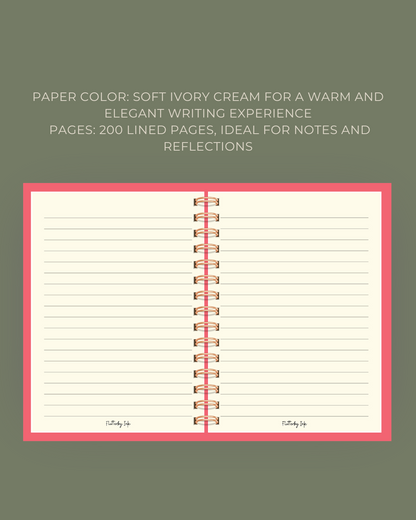 PAPER COLOR: SOFT IVORY CREAM FOR A WARM AND
ELEGANT WRITING EXPERIENCE
PAGES: 200 LINED PAGES, IDEAL FOR NOTES AND
REFLECTIONS